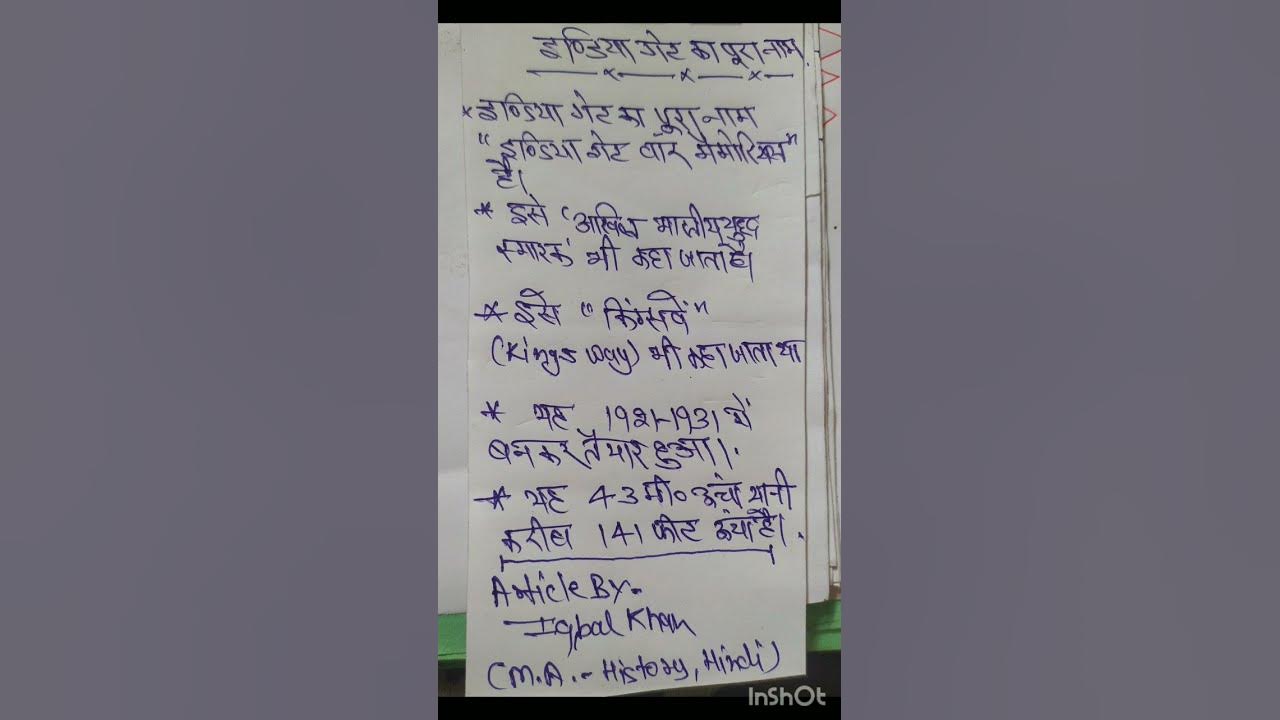 इण्डिया गेट का पूरा नाम.
* इण्डिया गेट का पूरा नाम
"इण्डिया गेट वॉर मेमोरियल"
है।
* इसे 'अखिल भारतीय युद्ध
स्मारक' भी कहा जाता है।
* इसे "किंग्सवे"
(Kings way) भी कहा जाता था
* यह 1921-1931 में
बनकर तैयार हुआ।
* यह 43 मी० ऊंचा यानी
करीब 141 फीट ऊंचा है।
Article By-
Iqbal Khan
(M.A. - History, Hindi)
InShOt